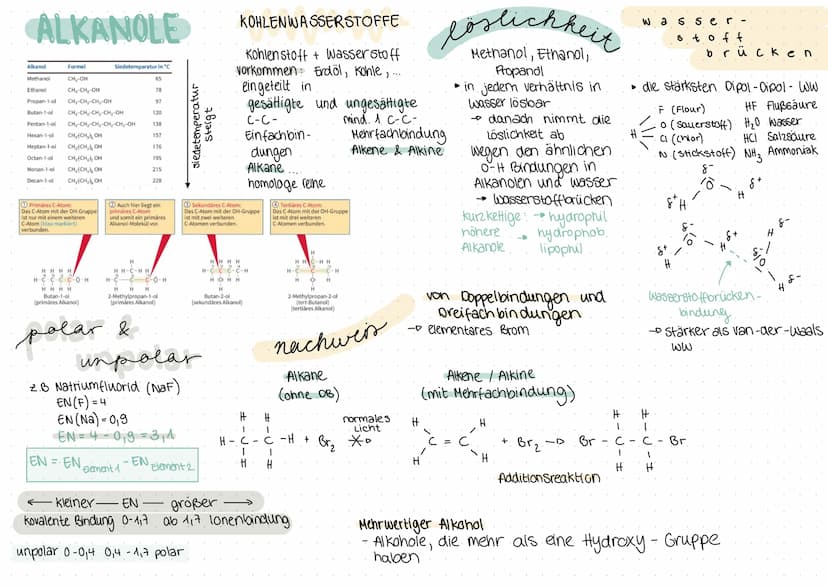 ALKANOLE
Alkanol Formel Siedetemperatur in °C
Methanol CH₃-OH 65
Ethanol CH₃-CH₂-OH 78
Propan-1-ol CH₃-CH₂-CH₂-OH 97
Butan-1-ol CH₃-CH₂-CH₂-CH₂-OH 120
Pentan-1-ol CH₃-CH₂-CH₂-CH₂-CH₂-OH 138
Hexan-1-ol 157
Heptan-1-ol 176
Octan-1-ol 195
Nonan-1-ol 215
Decan-1-ol 228
Siedetemperatur
steigt
① Primäres C-Atom:
Das C-Atom mit der OH-Gruppe
ist nur mit einem weiteren
C-Atom (blau markiert)
verbunden.
② Auch hier liegt ein
primäres C-Atom
und somit ein primäres
Alkanol-Molekül vor.
③ Sekundäres C-Atom:
Das C-Atom mit der OH-Gruppe
ist mit zwei weiteren
C-Atomen verbunden.
④ Tertiäres C-Atom:
Das C-Atom mit der OH-Gruppe
ist mit drei weiteren
C-Atomen verbunden.
Butan-1-ol
(primäres Alkanol)
2-Methylpropan-1-ol
(primäres Alkanol)
Butan-2-ol
(sekundäres Alkanol)
2-Methylpropan-2-ol
(tert-Butanol)
(tertiäres Alkanol)
KOHLENWASSERSTOFFE
Kohlenstoff + Wasserstoff
Vorkommen: Erdöl, Kohle, ...
eingeteilt in
gesättigte und ungesättigte
C-C- mind. 1 C-C-
Einfachbin- Mehrfachbindung
dungen Alkene & Alkine
Alkane ...
homologe reihe
löslichkeit
Methanol, Ethanol,
Propanol
• in jedem verhältnis in
wasser lösbar
→ danach nimmt die
löslichkeit ab
wegen den ähnlichen
O-H Bindungen in
Alkanolen und wasser
→ wasserstoffbrücken
kurzkettige: → hydrophil
höhere → hydrophob
Alkanole lipophil
wasser-
stoff
brücken
• die stärksten Dipol-Dipol-WW
F (Flour) HF Flußsäure
H O (Sauerstoff) H₂O Wasser
Cl (Chlor) HCl Salzsäure
N (Stickstoff) NH₃ Ammoniak
δ-
O δ+
δ+ H
δ- H δ-
O δ+ δ-/
δ+ H O
H H δ-
Wasserstoffbrücken-
bindung
→ stärker als van-der-waals
WW
polar &
unpolar
z.B Natriumfluorid (NaF)
EN(F) = 4
EN(Na) = 0,9
EN = 4 - 0,9 = 3,1
EN = EN Element 1 - EN Element 2
← kleiner — EN — größer →
kovalente Bindung 0-1,7 ab 1,7 Ionenbindung
unpolar 0-0,4 0,4-1,7 polar
nachweis
von Doppelbindungen und
Dreifachbindungen
→ elementares Brom
Alkane
(ohne DB)
H H
H - C - C - H + Br₂
H H
normales
Licht
Alkene / Alkine
(mit Mehrfachbindung)
H H
C = C + Br₂ → Br - C - C - Br
H H
H H
H H
Additionsreaktion
Mehrwertiger Alkohol
- Alkohole, die mehr als eine Hydroxy-Gruppe
haben